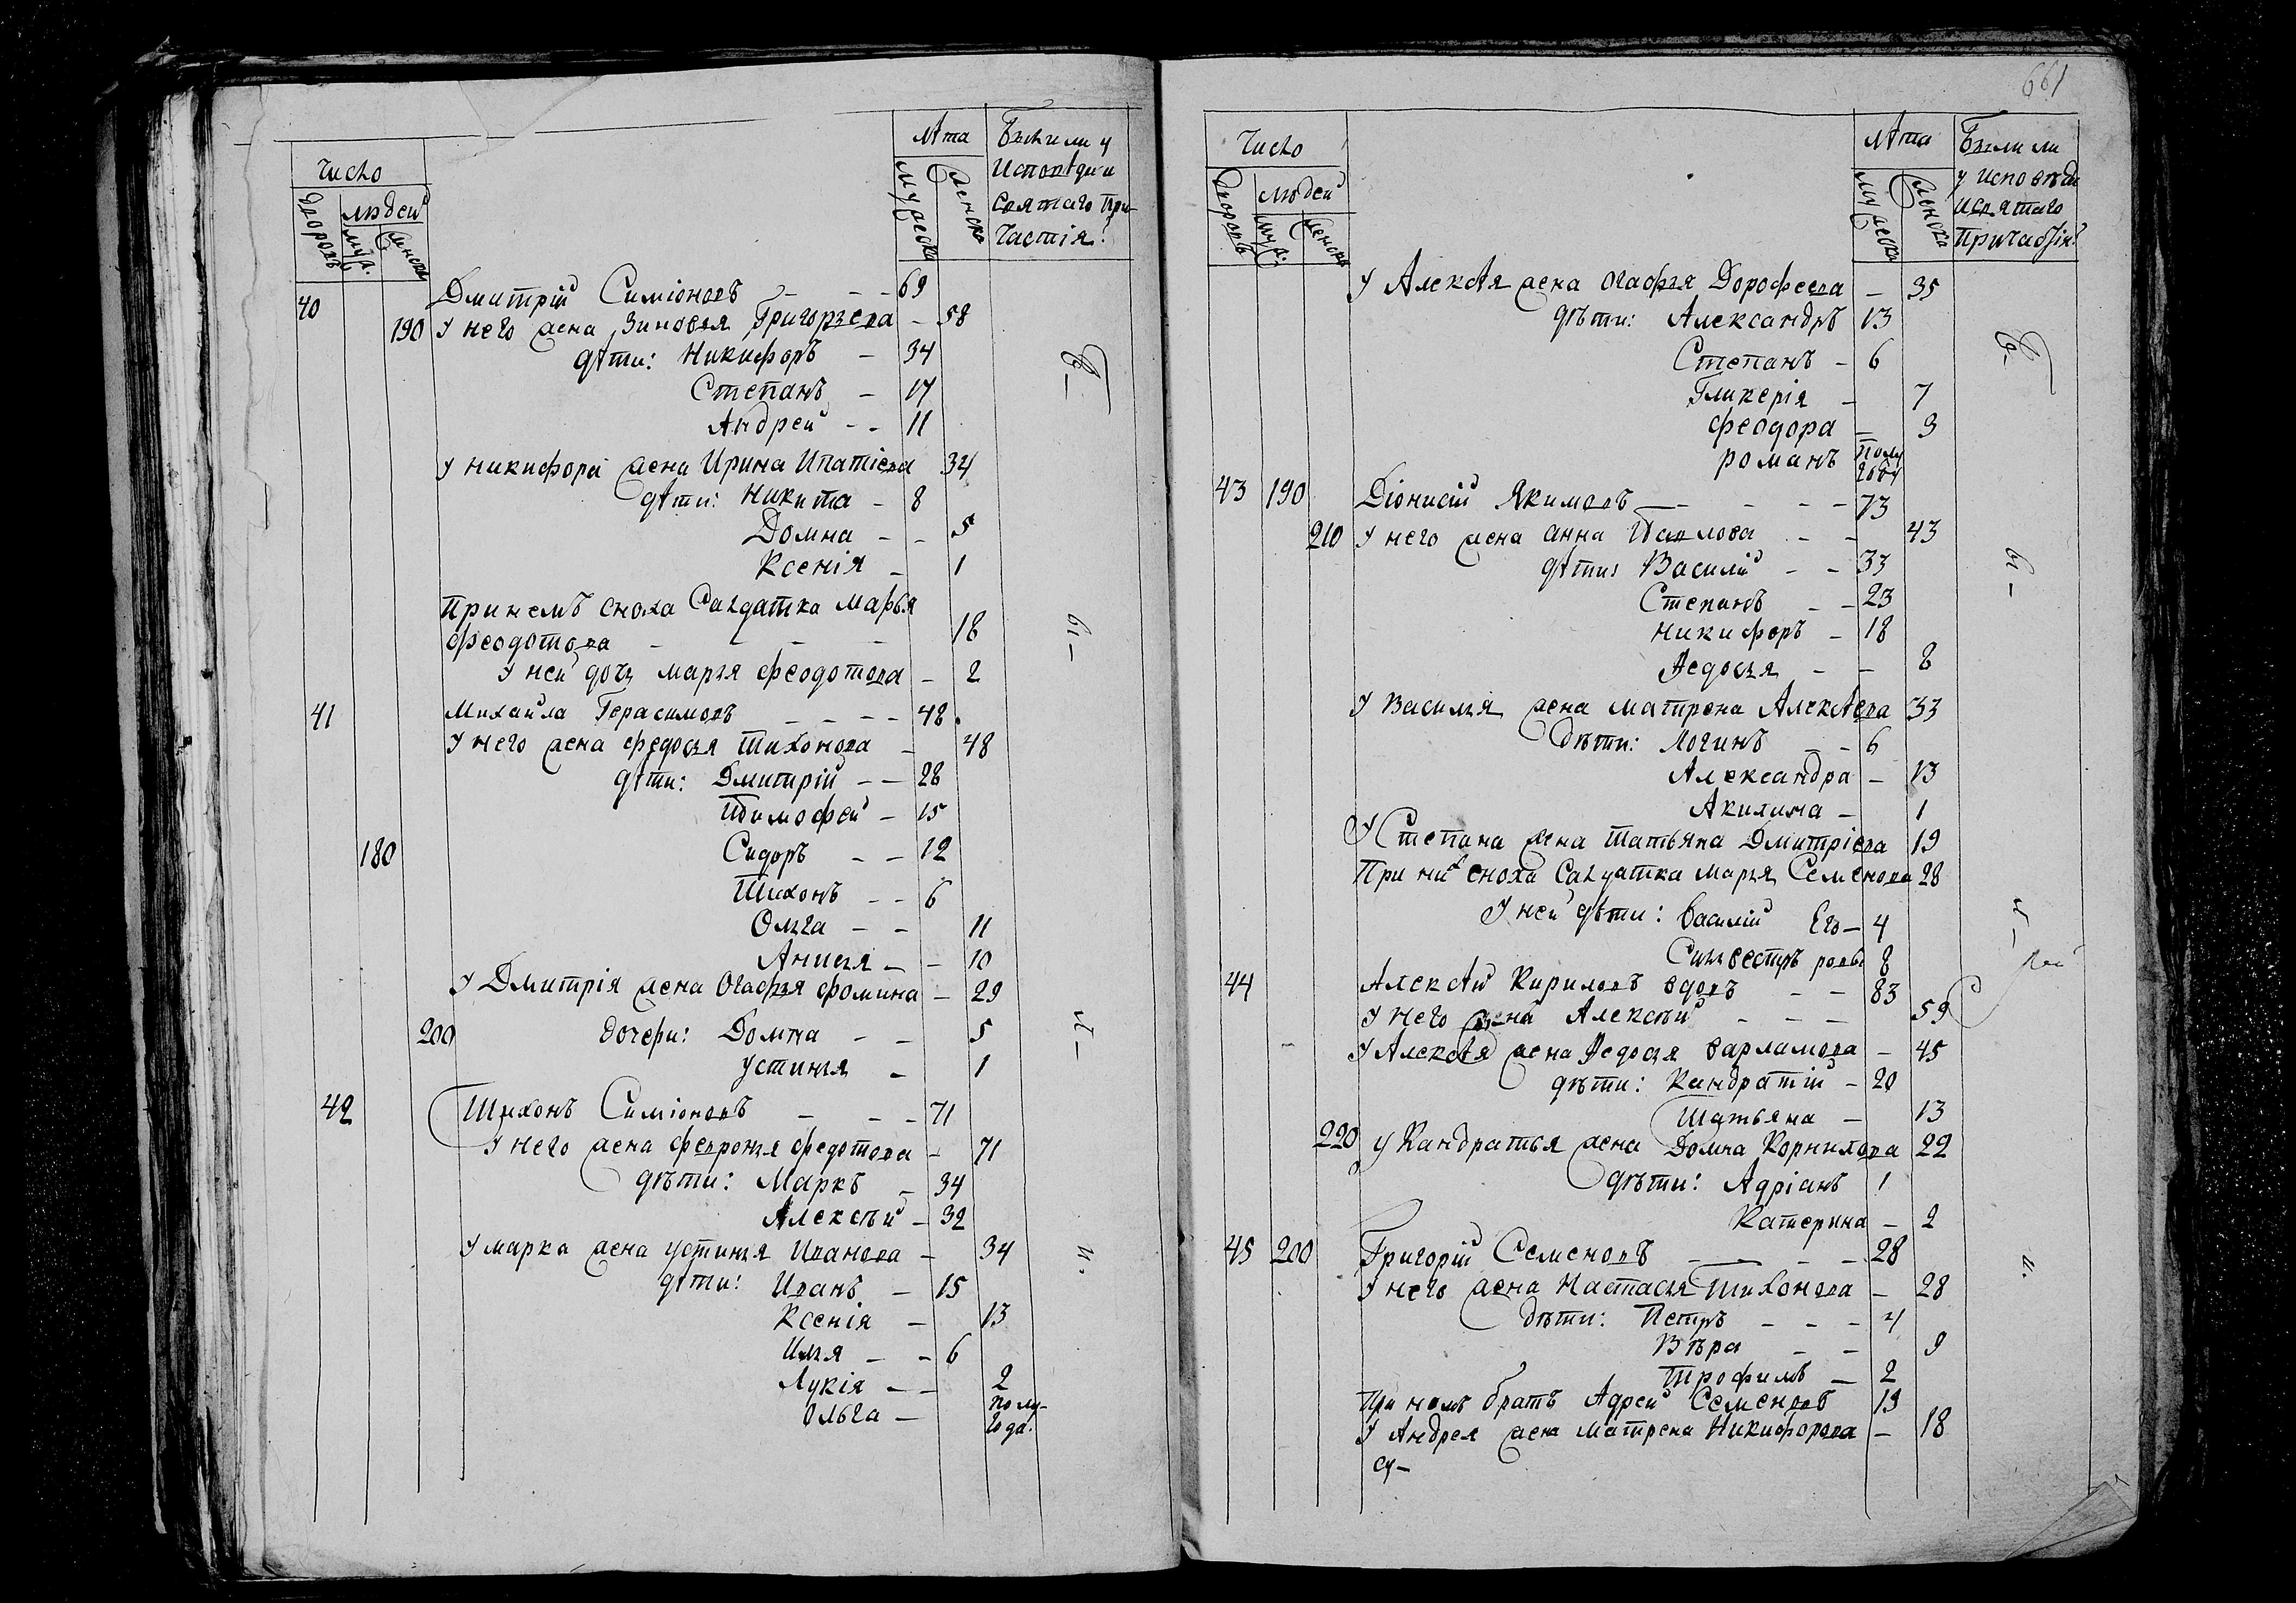 Число
Дворовъ
людей
муж.
женска
Лѣта
мужеска
женска
Были ли у
Исповѣди и
Святаго При-
частія?
40 Дмитрій Симіоновъ - - - 69
190 У него жена Зиновья Григорьева - 58
дѣти: Никифоръ - 34
Степанъ - 17
Андрей - - 11
У Никифора жена Ирина Ипатіева 34
дѣти: Никита - 8
Домна - - 5
Ксенія - 1
При немъ сноха Салдатка Марья
Феодотова - - - - 18
У ней дочь Марья Феодотова - 2
41 Михайла Герасимовъ - - - - 48
У него жена Федосья Тихонова - 48
дѣти: Дмитрій - - 28
Тимофей - 15
180 Сидоръ - - 12
Тихонъ - - 6
Ольга - - 11
Анисья - - 10
У Дмитрія жена Огафья Фомина - 29
200 дочери: Домна - - 5
Устинья - 1
42 Тихонъ Симіоновъ - - - 71
У него жена Февронья Федотова - 71
дѣти: Маркъ - 34
Алексѣй - 32
У Марка жена Устинья Иванова - 34
дѣти: Иванъ - 15
Ксенія - 13
Илья - - 6
Лукія - - 2
Ольга - полу-
года.
661
Число
Дворовъ
людей
муж.
женска
Лѣта
мужеска
женска
Были ли
у Исповѣди
и Святаго
Причастія?
У Алексѣя жена Огафья Дорофеева - 35
дѣти: Александръ 13
Степанъ - 6
Гликерія - 7
Феодора - 3
Романъ полу
году
43 190 Діонисій Якимовъ - - - - - 73
210 У него жена Анна Павлова - - 43
дѣти: Василій - - 33
Степанъ - - 23
Никифоръ - 18
Ѳедосья - - 8
У Василья жена Матрена Алексѣева 33
дѣти: Логинъ - - 6
Александра - 13
Акилина - 1
У Степана жена Татьяна Дмитріева 19
При них сноха Салдатка Марья Семенова 28
У ней дѣти: Василій Его - 4
Сильвестръ 8
44 Алексѣй Кириловъ вдовъ - - 83
У него сынъ Алексѣй - - - 59
У Алексѣя жена Ѳедосья Варламова - 45
дѣти: Кандратій - 20
Татьяна - 13
220 У Кандратья жена Домна Корнилова 22
дѣти: Адріанъ 1
Катерина - 2
45 200 Григорій Семеновъ - - - - 28
У него жена Настасья Тихонова - 28
дѣти: Петръ - - - 4
Вѣра - - 9
Трофимъ - 2
При немъ братъ Адрей Семеновъ 19
У Андрея жена Матрена Никифорова - 18